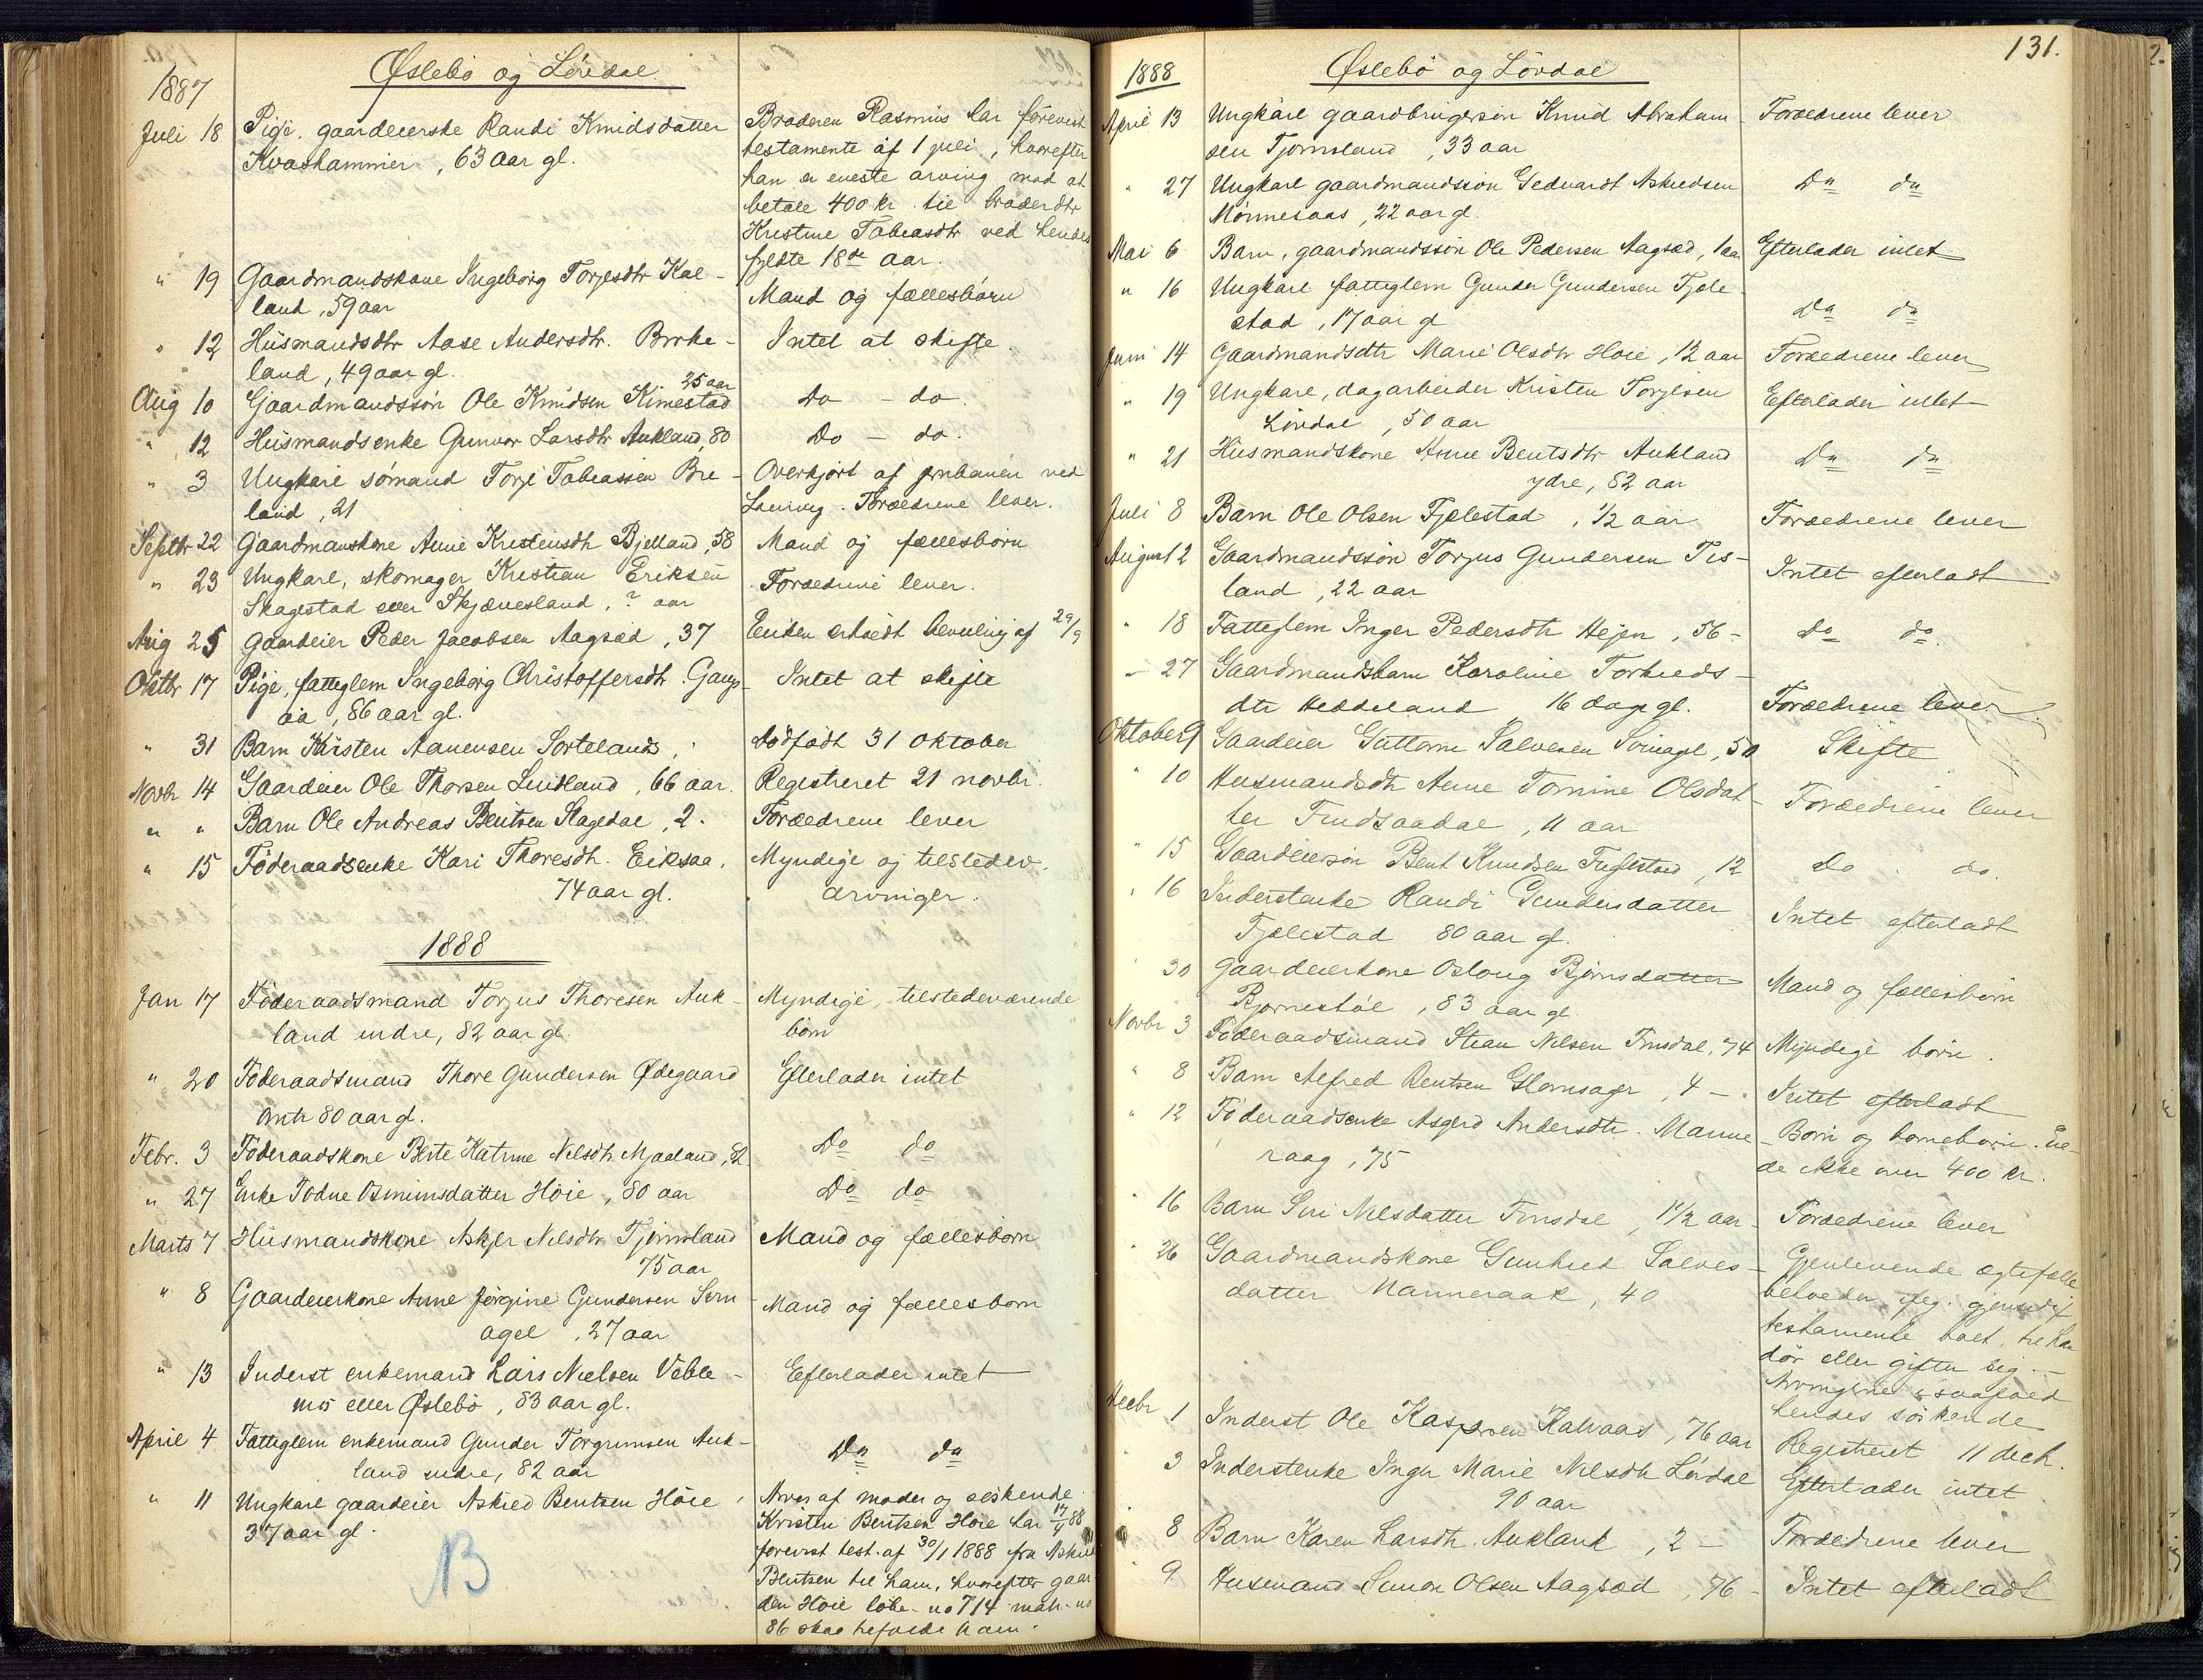 Øslebö og Lövdal
1887
Juli 18 Pige. gaardeierske Randi Knudsdatter
Kvashammer, 63 aar gl.
Broderen Rasmus har forevist
testamente af 1 juli, hvorefter
han er eneste arving mod at
betale 400 kr. til broderdtr
Kristine Tobiasdtr ved hendes
fyldte 18de aar.
" 19 Gaardmandskone Ingeborg Torjesdtr Kal-
land, 59 aar
Mand og fællesbörn
" 12 Husmandsdtr Aase Andersdtr. Birke-
land, 49 aar gl.
Intet at skifte.
25 aar
Aug 10 Gaardmandssön Ole Knudsen Kimestad
Do - do.
" 12 Husmandsenke Gunvor Larsdtr Aukland, 80
Do - do.
" 3 Ungkarl sömand Torje Tobiassen Bre-
land, 21
Overkjört af jernbanen ved
Laurvig. Forældrene lever.
Septbr 22 Gaardmanskone Anne Kristensdtr Bjelland, 58
Mand og fællesbörn
" 23 Ungkarl, skomager Kristian Eriksen
Skagestad eller Skjævesland, ? aar
Forældrene lever.
Aug 25 Gaardeier Peder Jacobsen Aagsæd, 37
Enken erholdt bevilling af 29/9
Oktbr 17 Pige, fattiglem Ingeborg Christoffersdtr. Gaup-
aa, 86 aar gl.
Intet at skifte
" 31 Barn Kirsten Aanensen Sortelands,
Dödfödt 31 oktober
Novbr 14 Gaardeier Ole Thorsen Lindland, 66 aar.
Registreret 21 novbr.
" " Barn Ole Andreas Bentsen Stagedal, 2.
Forældrene lever
" 15 Föderaadsenke Kari Thoresdtr. Eiksaa.
74 aar gl.
Myndige og tilstedev.
arvinger.
1888
Jan 17 Föderaadsmand Torjus Thoresen Auk-
land indre, 82 aar gl.
Myndige, tilstedeværende
börn
" 20 Föderaadsmand Thore Gundersen Ødegaard
omtr 80 aar gl.
Efterlader intet
Febr. 3 Föderaadskone Berte Katrine Nilsdtr Mjaaland, 82
Do do
" 27 Enke Todne Osmunsdatter Höie, 80 aar
Do do
Marts 7 Husmandskone Askjer Nilsdtr Tjomsland
75 aar
Mand og fællesbörn
" 8 Gaardeierkone Anne Jörgine Gundersen Svin-
agel, 27 aar
Mand og fællesbörn
" 13 Inderst enkemand Lars Nielsen Vible-
mo eller Øslebö, 83 aar gl.
Efterlader intet
April 4 Fattiglem enkemand Gunder Torgrimsen Auk-
land indre, 82 aar
Do do
" 11 Ungkarl gaardeier Askild Bentsen Höie,
37 aar gl.
Arves af moder og söskende.
Kristen Bentsen Höie har 17/4 88
forevist test. af 30/1 1888 fra Askild
Bentsen til ham, hvorefter gaar-
den Höie löbe-no 714 matr-no
86 skal tilfalde ham.
B
131.
1888
Øslebö og Lövdal
April 13 Ungkarl gaardbrugersön Knud Abraham-
sen Tjomsland, 33 aar
Forældrene lever
" 27 Ungkarl gaardmandssön Gedvardt Askildsen
Mönnesaas, 22 aar gl.
Do do
Mai 6 Barn, gaardmandssön Ole Pedersen Aagsæd, 1 aar
Efterlader intet
" 16 Ungkarl fattiglem Gunder Gundersen Fjele-
stad, 17 aar g
Do do
Juni 14 Gaardmandsdtr Marie Olsdtr Höie, 12 aar
Forældrene lever
" 19 Ungkarl, dagarbeider Kristen Torjesen
Lövdal, 50 aar
Efterlader intet
" 21 Husmandskone Anne Bentsdtr Aukland
ydre, 82 aar
Do do
Juli 8 Barn Ole Olsen Fjelestad, 1/2 aar
Forældrene lever
August 2 Gaardmandssön Torjus Gundersen Tis-
land, 22 aar
Intet efterladt
" 18 Fattiglem Inger Pedersdtr Hejen, 56 -
do do.
- 27 Gaardmandsbarn Karoline Torkilds-
dtr Heddeland 16 dage gl.
Forældrene lever.
Oktober 9 Gaardeier Guttorm Salvesen Svinagel, 50
Skifte
" 10 Husmandsdtr Anne Tomine Olsdat-
ter Findsaadal, 11 aar
Forældrene lever
" 15 Gaardeiersön Bent Knudsen Fuglestved, 12
do do.
" 16 Inderstenke Randi Gundersdatter
Fjelestad 80 aar gl.
Intet efterladt
" 30 Gaardeierkone Oslaug Björnsdatter
Bjornestöl, 83 aar gl
Mand og fællesbörn
Novbr 3 Föderaadsmand Stean Nilsen Finsdal, 74
Myndige börn.
" 8 Barn Alfred Bentsen Glomsager, 4 -
Intet efterladt
" 12 Föderaadsenke Asgjerd Andersdtr. Manne-
raag, 75
Börn og börnebörn. Eie-
de ikke over 400 kr.
" 16 Barn Siri Nilsdatter Finsdal, 1 1/2 aar
Forældrene lever
" 26 Gaardmandskone Gunhild Salves-
datter Manneraak, 40
Gjenlevende ægtefælle
beholder iflg. gjensidig
testamente boet, til han
dör eller gifter sig. -
Arvingerne i saafald
hendes söskende
Decbr 1 Inderst Ole Kaspersen Kalvaas, 76 aar
Registreret 11 decb.
" 3 Inderstenke Inger Marie Nilsdtr Lövdal
90 aar
Efterlader intet
" 8 Barn Karen Larsdtr. Aukland, 2 -
Forældrene lever
" 9 Husmand Simon Olsen Aagsæd, 76 -
Intet efterladt